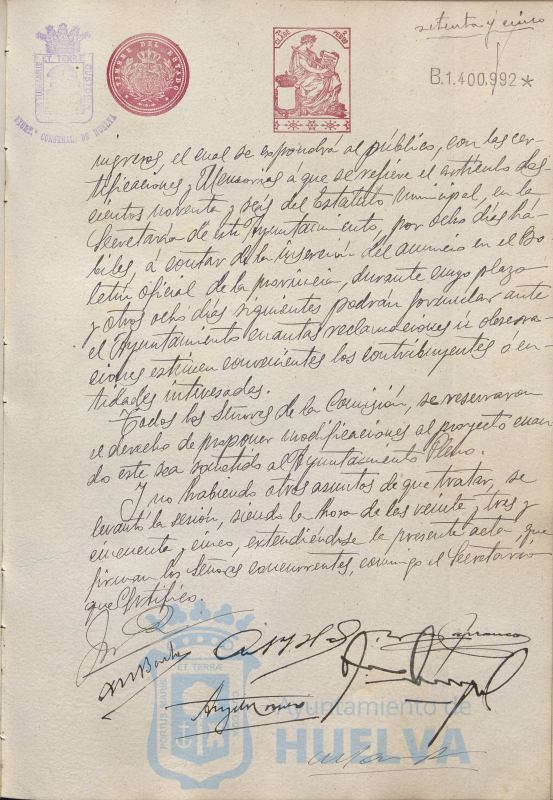 setenta y cinco
TIMBRE DEL ESTADO
7ª CLASE
B.1.400.992*
AYUNT. CONSTNAL. DE HUELVA
ingresos el cual se expondrá al público, con las cer-
tificaciones y Memorias a que se refiere el artículo dos-
cientos noventa y seis del Estatuto Municipal, en la
Secretaría de este Ayuntamiento, por ocho días há-
biles, á contar de la inserción del anuncio en el Bo-
letín Oficial de la provincia, durante cuyo plazo
y otros ocho días siguientes podrán formular ante
el Ayuntamiento cuantas reclamaciones ú observa-
ciones estimen convenientes los contribuyentes ó en-
tidades interesadas.
Todos los Señores de la Comisión, se reservaron
el derecho de proponer modificaciones al proyecto cuan-
do este sea sometido al Ayuntamiento Pleno.
Y no habiendo otros asuntos de que tratar, se
levantó la sesión, siendo la hora de las veinte, tres y
cincuenta y cinco, extendiéndose la presente acta, que
firman los Señores concurrentes, conmigo el Secretario
que Certifico.
PORTUS MARIS ET TERRÆ CUSTODIA
Ayuntamiento de
HUELVA